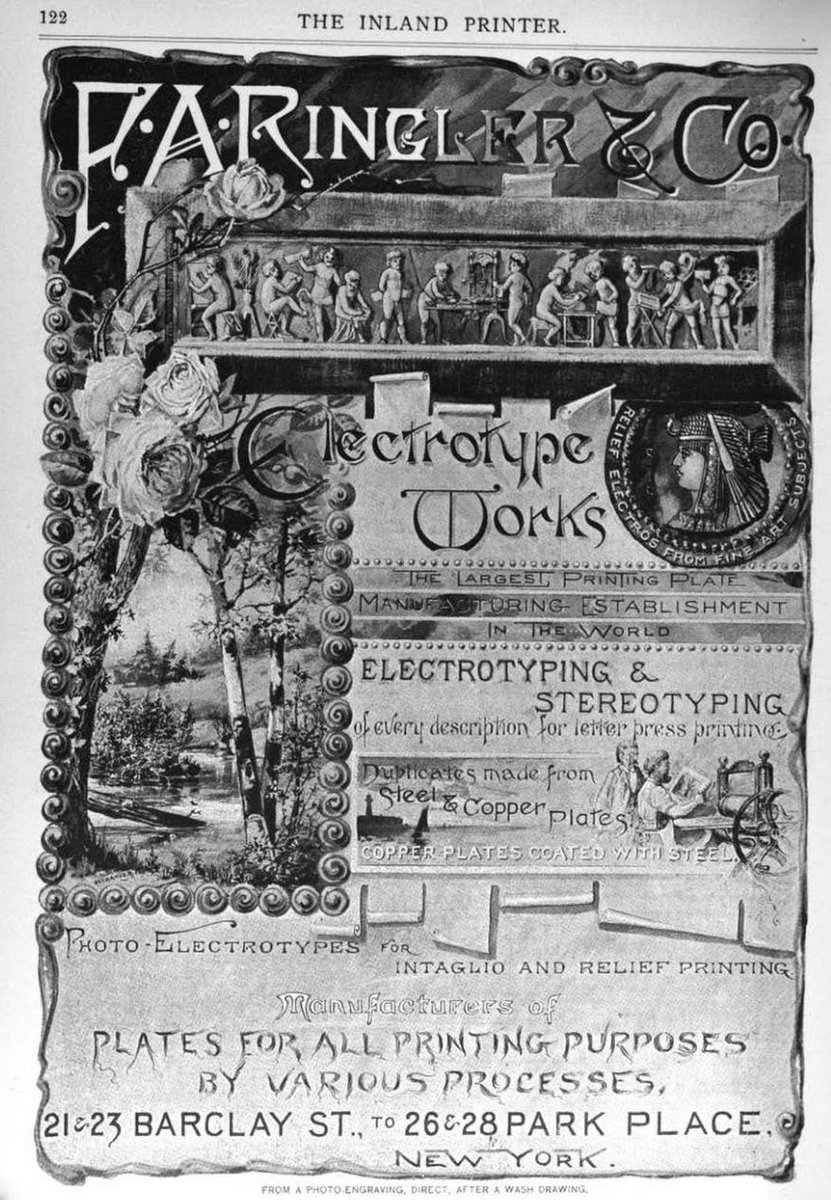 122
THE INLAND PRINTER.
F. A. RINGLER & CO.
Electrotype
Works
RELIEF ELECTROS FROM FINE ART SUBJECTS
THE LARGEST, PRINTING PLATE
MANUFACTURING ESTABLISHMENT
IN THE WORLD
ELECTROTYPING &
STEREOTYPING
of every description for letter press printing
Duplicates made from
Steel & Copper Plates
COPPER PLATES COATED WITH STEEL.
PHOTO-ELECTROTYPES FOR
INTAGLIO AND RELIEF PRINTING
Manufacturers of
PLATES FOR ALL PRINTING PURPOSES
BY VARIOUS PROCESSES,
21 & 23 BARCLAY ST., TO 26 & 28 PARK PLACE.
NEW YORK.
FROM A PHOTO-ENGRAVING, DIRECT, AFTER A WASH DRAWING.